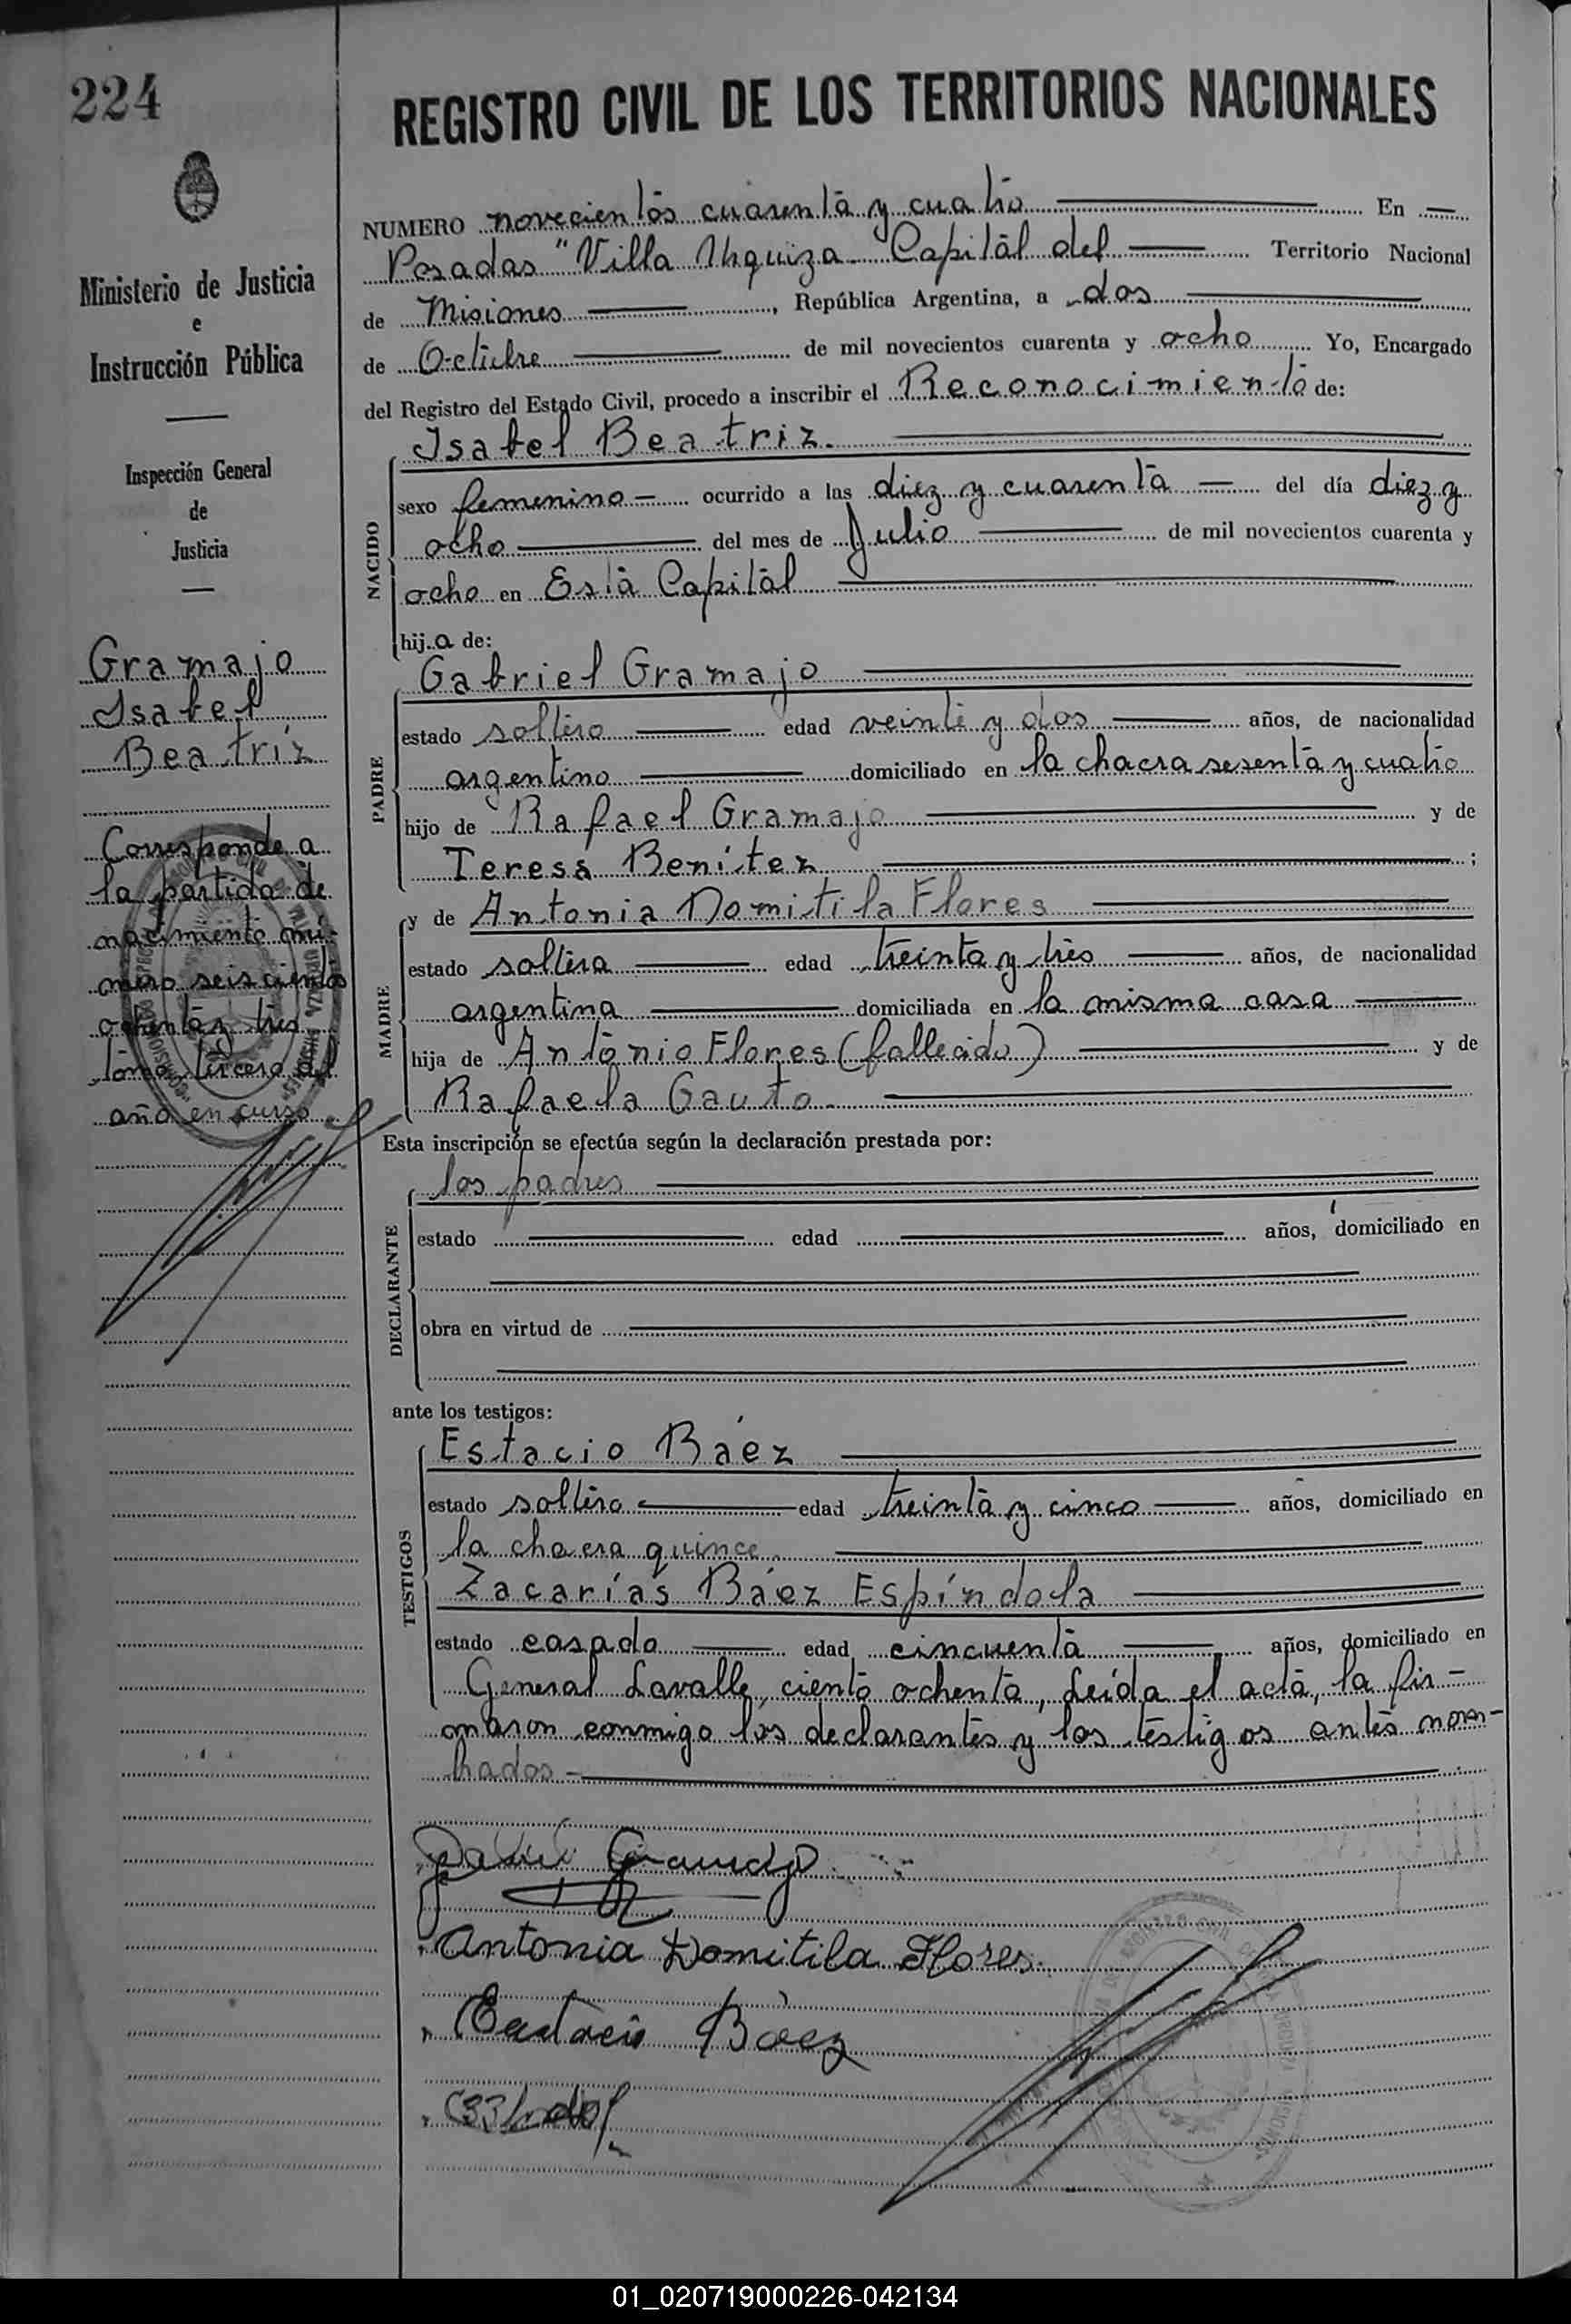 224
REGISTRO CIVIL DE LOS TERRITORIOS NACIONALES
Ministerio de Justicia
e
Instrucción Pública
Inspección General
de
Justicia
Gramajo
Isabel
Beatríz
Corresponde a
la partida de
nacimiento nú-
mero seiscientos
ochenta y tres
tomo tercero del
año en curso
NUMERO novecientos cuarenta y cuatro En
Posadas "Villa Urquiza" Capital del Territorio Nacional
de Misiones, República Argentina, a dos
de Octubre de mil novecientos cuarenta y ocho Yo, Encargado
del Registro del Estado Civil, procedo a inscribir el Reconocimiento de:
Isabel Beatriz.
NACIDO
sexo femenino ocurrido a las diez y cuarenta del día diez y
ocho del mes de Julio de mil novecientos cuarenta y
ocho en Esta Capital
hija de:
Gabriel Gramajo
PADRE
estado soltero edad veinte y dos años, de nacionalidad
argentino domiciliado en la chacra sesenta y cuatro
hijo de Rafael Gramajo y de
Teresa Benítez ;
y de Antonia Domitila Flores
MADRE
estado soltera edad treinta y tres años, de nacionalidad
argentina domiciliada en la misma casa
hija de Antonio Flores (fallecido) y de
Rafaela Gauto
Esta inscripción se efectúa según la declaración prestada por:
los padres
DECLARANTE
estado edad años, domiciliado en
obra en virtud de
ante los testigos:
Estacio Báez
TESTIGOS
estado soltero edad treinta y cinco años, domiciliado en
la chacra quince
Zacarías Báez Espíndola
estado casado edad cincuenta años, domiciliado en
General Lavalle, ciento ochenta, Leída el acta, la fir-
maron conmigo los declarantes y los testigos antes nom-
brados
Gramajo
Antonia Domitila Flores
Báez
01_020719000226-042134